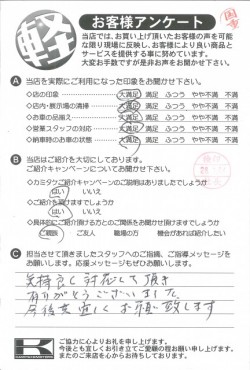 軽
お客様アンケート
当店では、お買い上げ頂いたお客様の声を可能
な限り現場に反映し、お客様により良い商品と
サービスを提供する事に努めています。
大変お手数ですが是非お声をお聞かせ下さい。
A 当店を実際にご利用になった印象をお聞かせ下さい。
◇店の印象 大満足 満足 ふつう やや不満 不満
◇店内・展示場の清掃 大満足 満足 ふつう やや不満 不満
◇お車の品揃え 大満足 満足 ふつう やや不満 不満
◇営業スタッフの対応 大満足 満足 ふつう やや不満 不満
◇納車時のお車の状態 大満足 満足 ふつう やや不満 不満
B 当店はご紹介を大切にしております。
ご紹介キャンペーンについてお聞かせ下さい。
◇カミタケご紹介キャンペーンのご説明はありましたでしょうか
はい いいえ
◇ご紹介を頂けますでしょうか
はい いいえ
◇具体的にご紹介頂ける方とのご関係をお聞かせ頂けますでしょうか
ご親戚 ご友人 職場の方 機会があれば紹介したい
C 担当させて頂きましたスタッフへのご指摘、ご指導メッセージを
お願いします。応援メッセージもぜひお願いします。
気持良く対応して頂き
ありがとうございました。
今後共宜しくお願い致します
K
ご協力に心よりお礼を申し上げます。
今後とも宜しくお引き立てご愛顧の程お願い申し上げます。
またのご来店を心からお待ちしております。